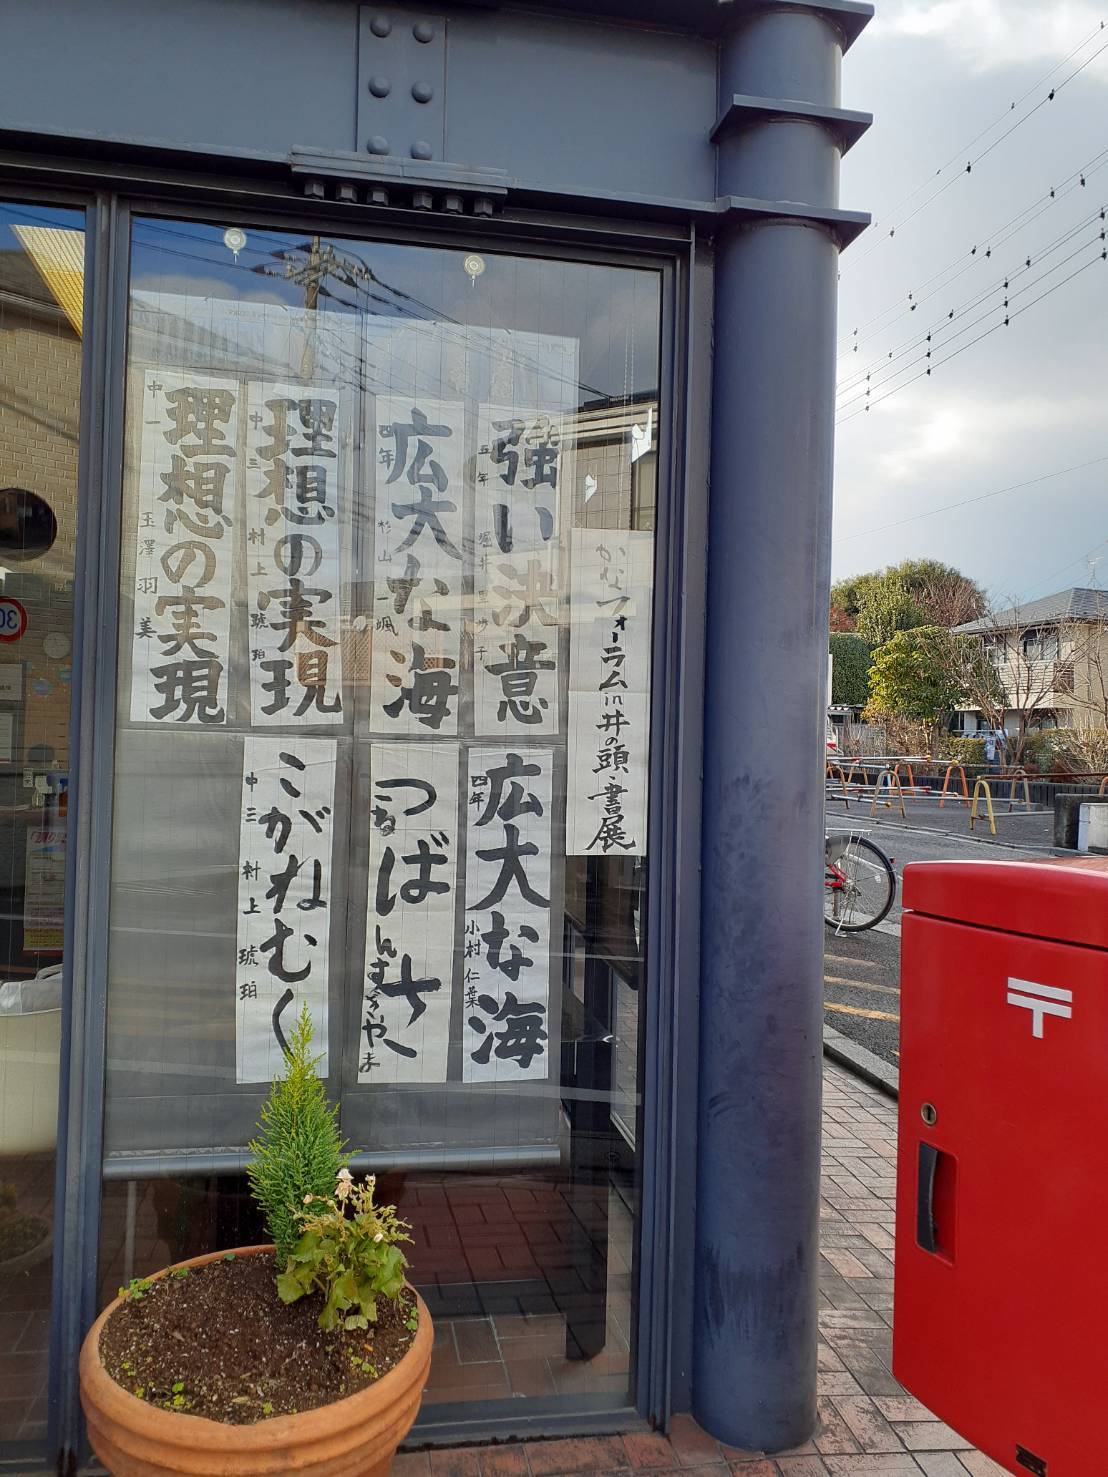 かなフォーラムin井の頭・書展
強い決意
五年
広大な海
四年 杉山 颯
理想の実現
中三 村上 琥珀
理想の実現
中一 玉澤 羽美
広大な海
四年 小村 仁葉
つばさ
こがねむく
中三 村上 琥珀
30
〒